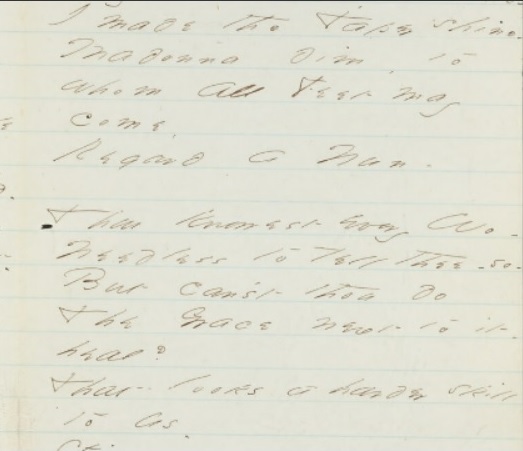 I made the Taper shine -
Madonna dim, to
whom all Feet may
come,
Regard a Nun -
Thou knowest every Wo -
Needless to tell thee - so -
But can'st thou do
the Grace next to it -
heal?
That looks a harder skill
to us -